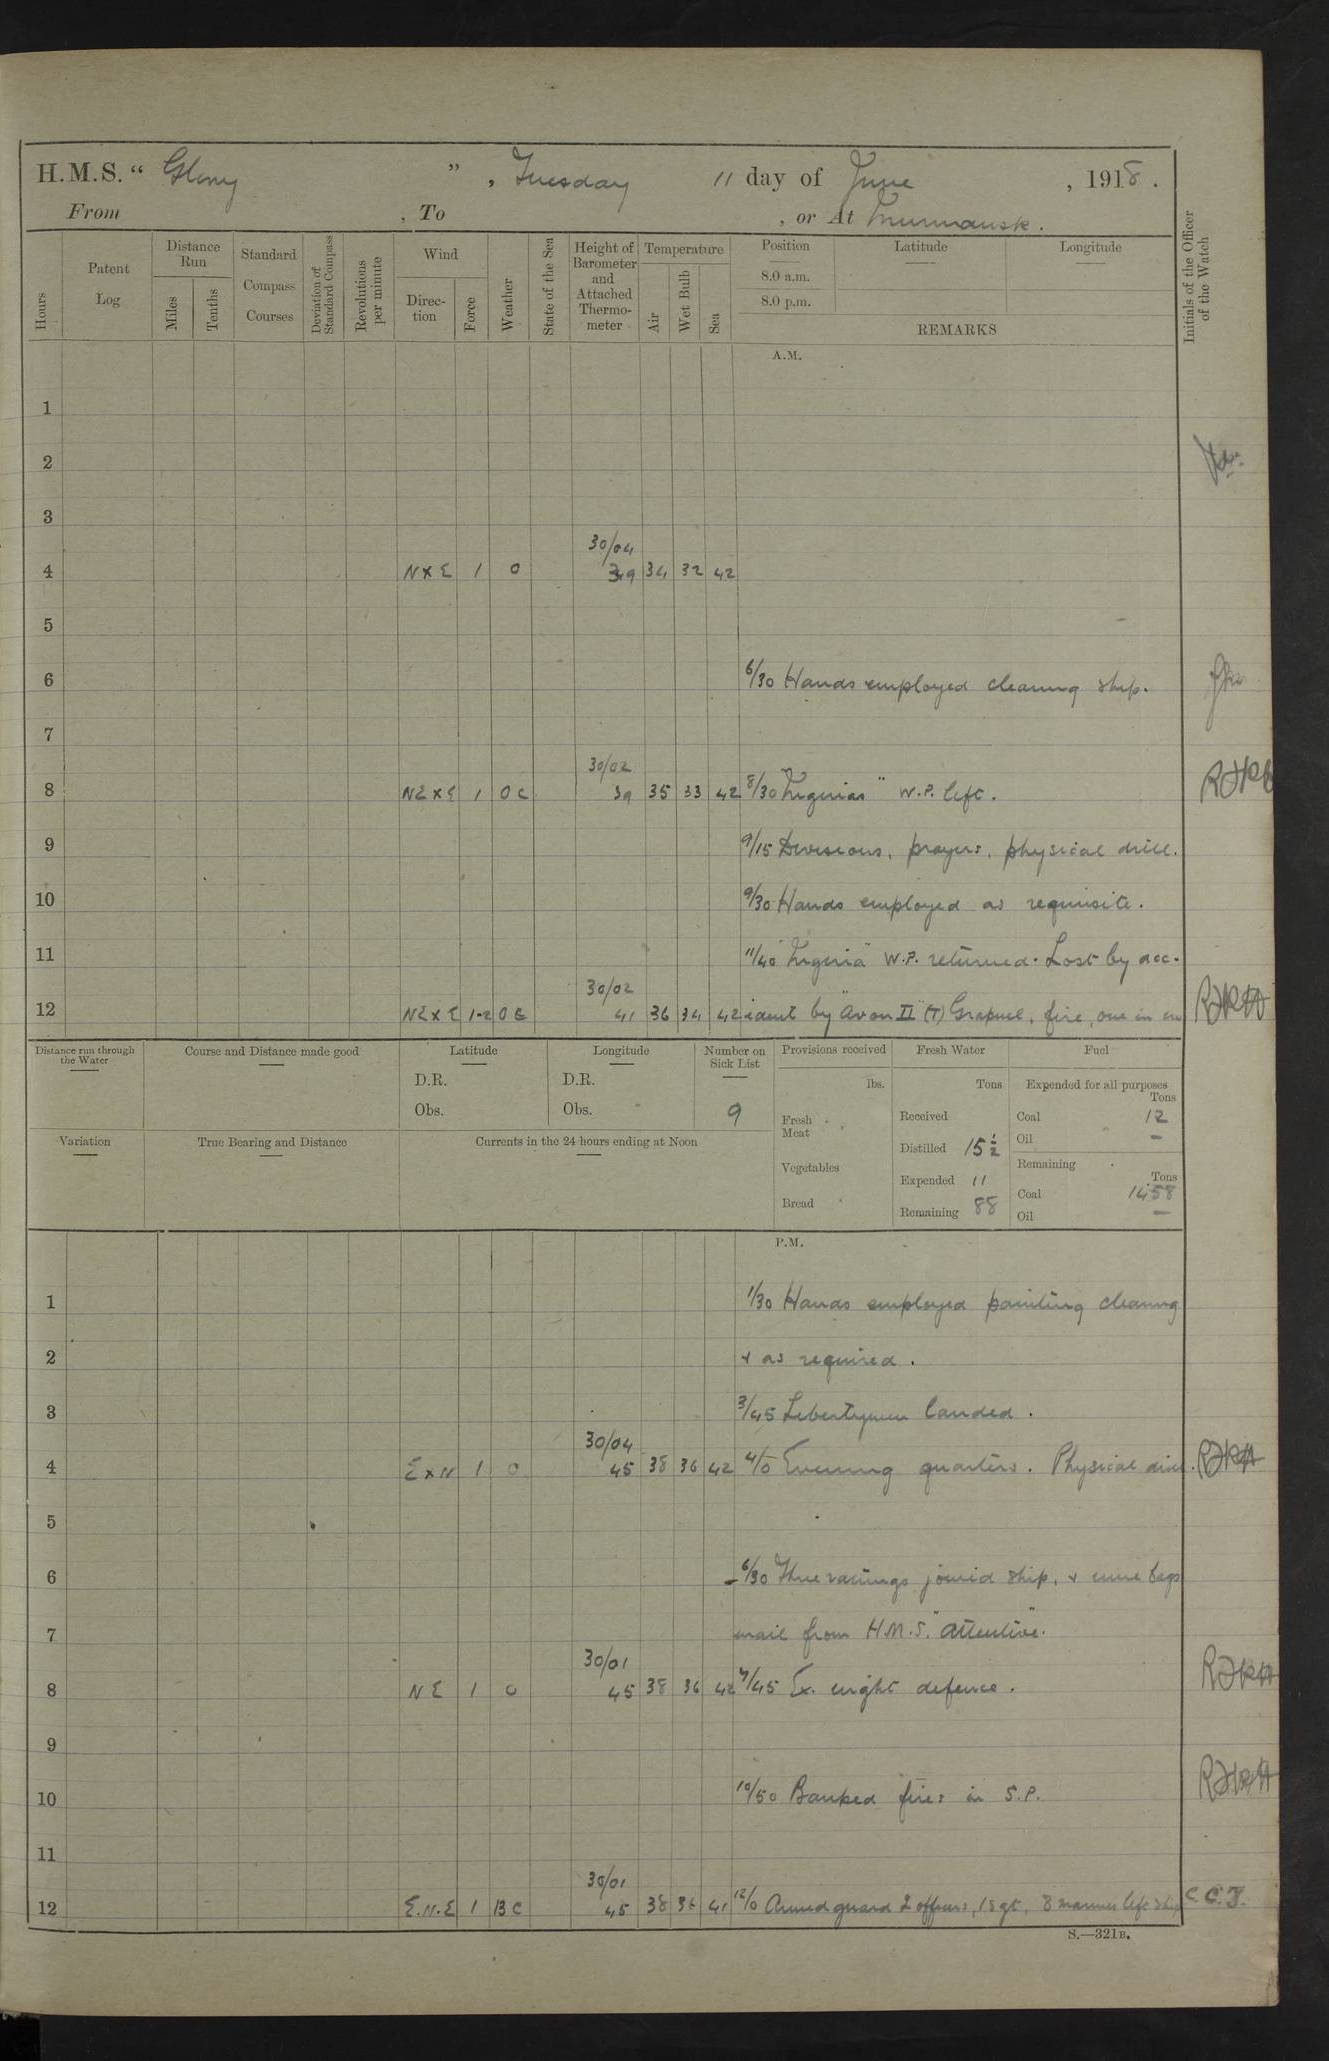 H.M.S. “ Glory ” , Tuesday 11 day of June , 1918 .
From , To , or At Murmansk.
Hours
Patent Log
Distance Run
Miles
Tenths
Standard Compass Courses
Deviation of Standard Compass
Revolutions per minute
Wind
Direction
Force
Weather
State of the Sea
Height of Barometer and Attached Thermometer
Temperature
Air
Wet Bulb
Sea
Position
8.0 a.m.
8.0 p.m.
Latitude
Longitude
REMARKS
Initials of the Officer of the Watch
A.M.
1
2
3
30/04
4 NXE 1 O 39 34 32 42
5
6 6/30 Hands employed cleaning ship.
7
30/02
8 NEXE 1 OC 39 35 33 42 8/30 W.P. left.
9 9/15 Divisions, prayers, physical drill.
10 9/30 Hands employed as requisite.
11 11/40 W.P. returned. Lost by acc-
30/02
12 NEXE 1-2 41 36 34 42 ident by "Avon II" (T) Grapnel, five, one in
Distance run through the Water
Course and Distance made good
Latitude
D.R.
Obs.
Longitude
D.R.
Obs.
Number on Sick List
9
Provisions received
lbs.
Fresh Meat
Vegetables
Bread
Fresh Water
Tons
Received
Distilled 15 1/2
Expended 11
Remaining 88
Fuel
Expended for all purposes
Tons
Coal 12
Oil –
Remaining
Tons
Coal 1458
Oil –
Variation
True Bearing and Distance
Currents in the 24 hours ending at Noon
P.M.
1 1/30 Hands employed painting cleaning
2 + as required.
3 3/45 Libertymen landed.
30/04
4 EXN 1 O 45 38 36 42 4/0 Evening quarters. Physical drill.
5
6 6/30 Three ratings joined ship, + nine bags
7 mail from H.M.S. "Attentive".
30/01
8 NE 1 O 45 38 36 42 7/45 Ex. night defence.
9
10 10/50 Banked fires in S.P.
11
30/01
12 E.N.E 1 BC 45 38 36 41 12/0 Armed guard 2 officers, 1 Sgt, 8 marines left ship C.C.J.
S.—321B.